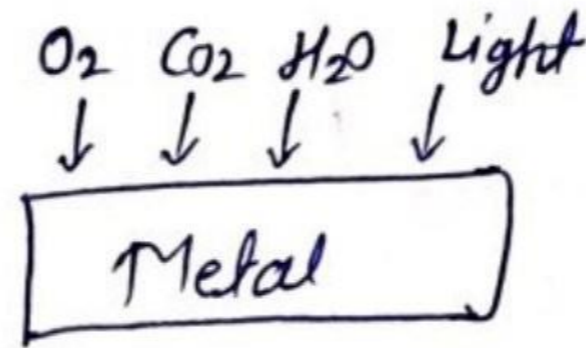 O2 CO2 H2O Light
Metal